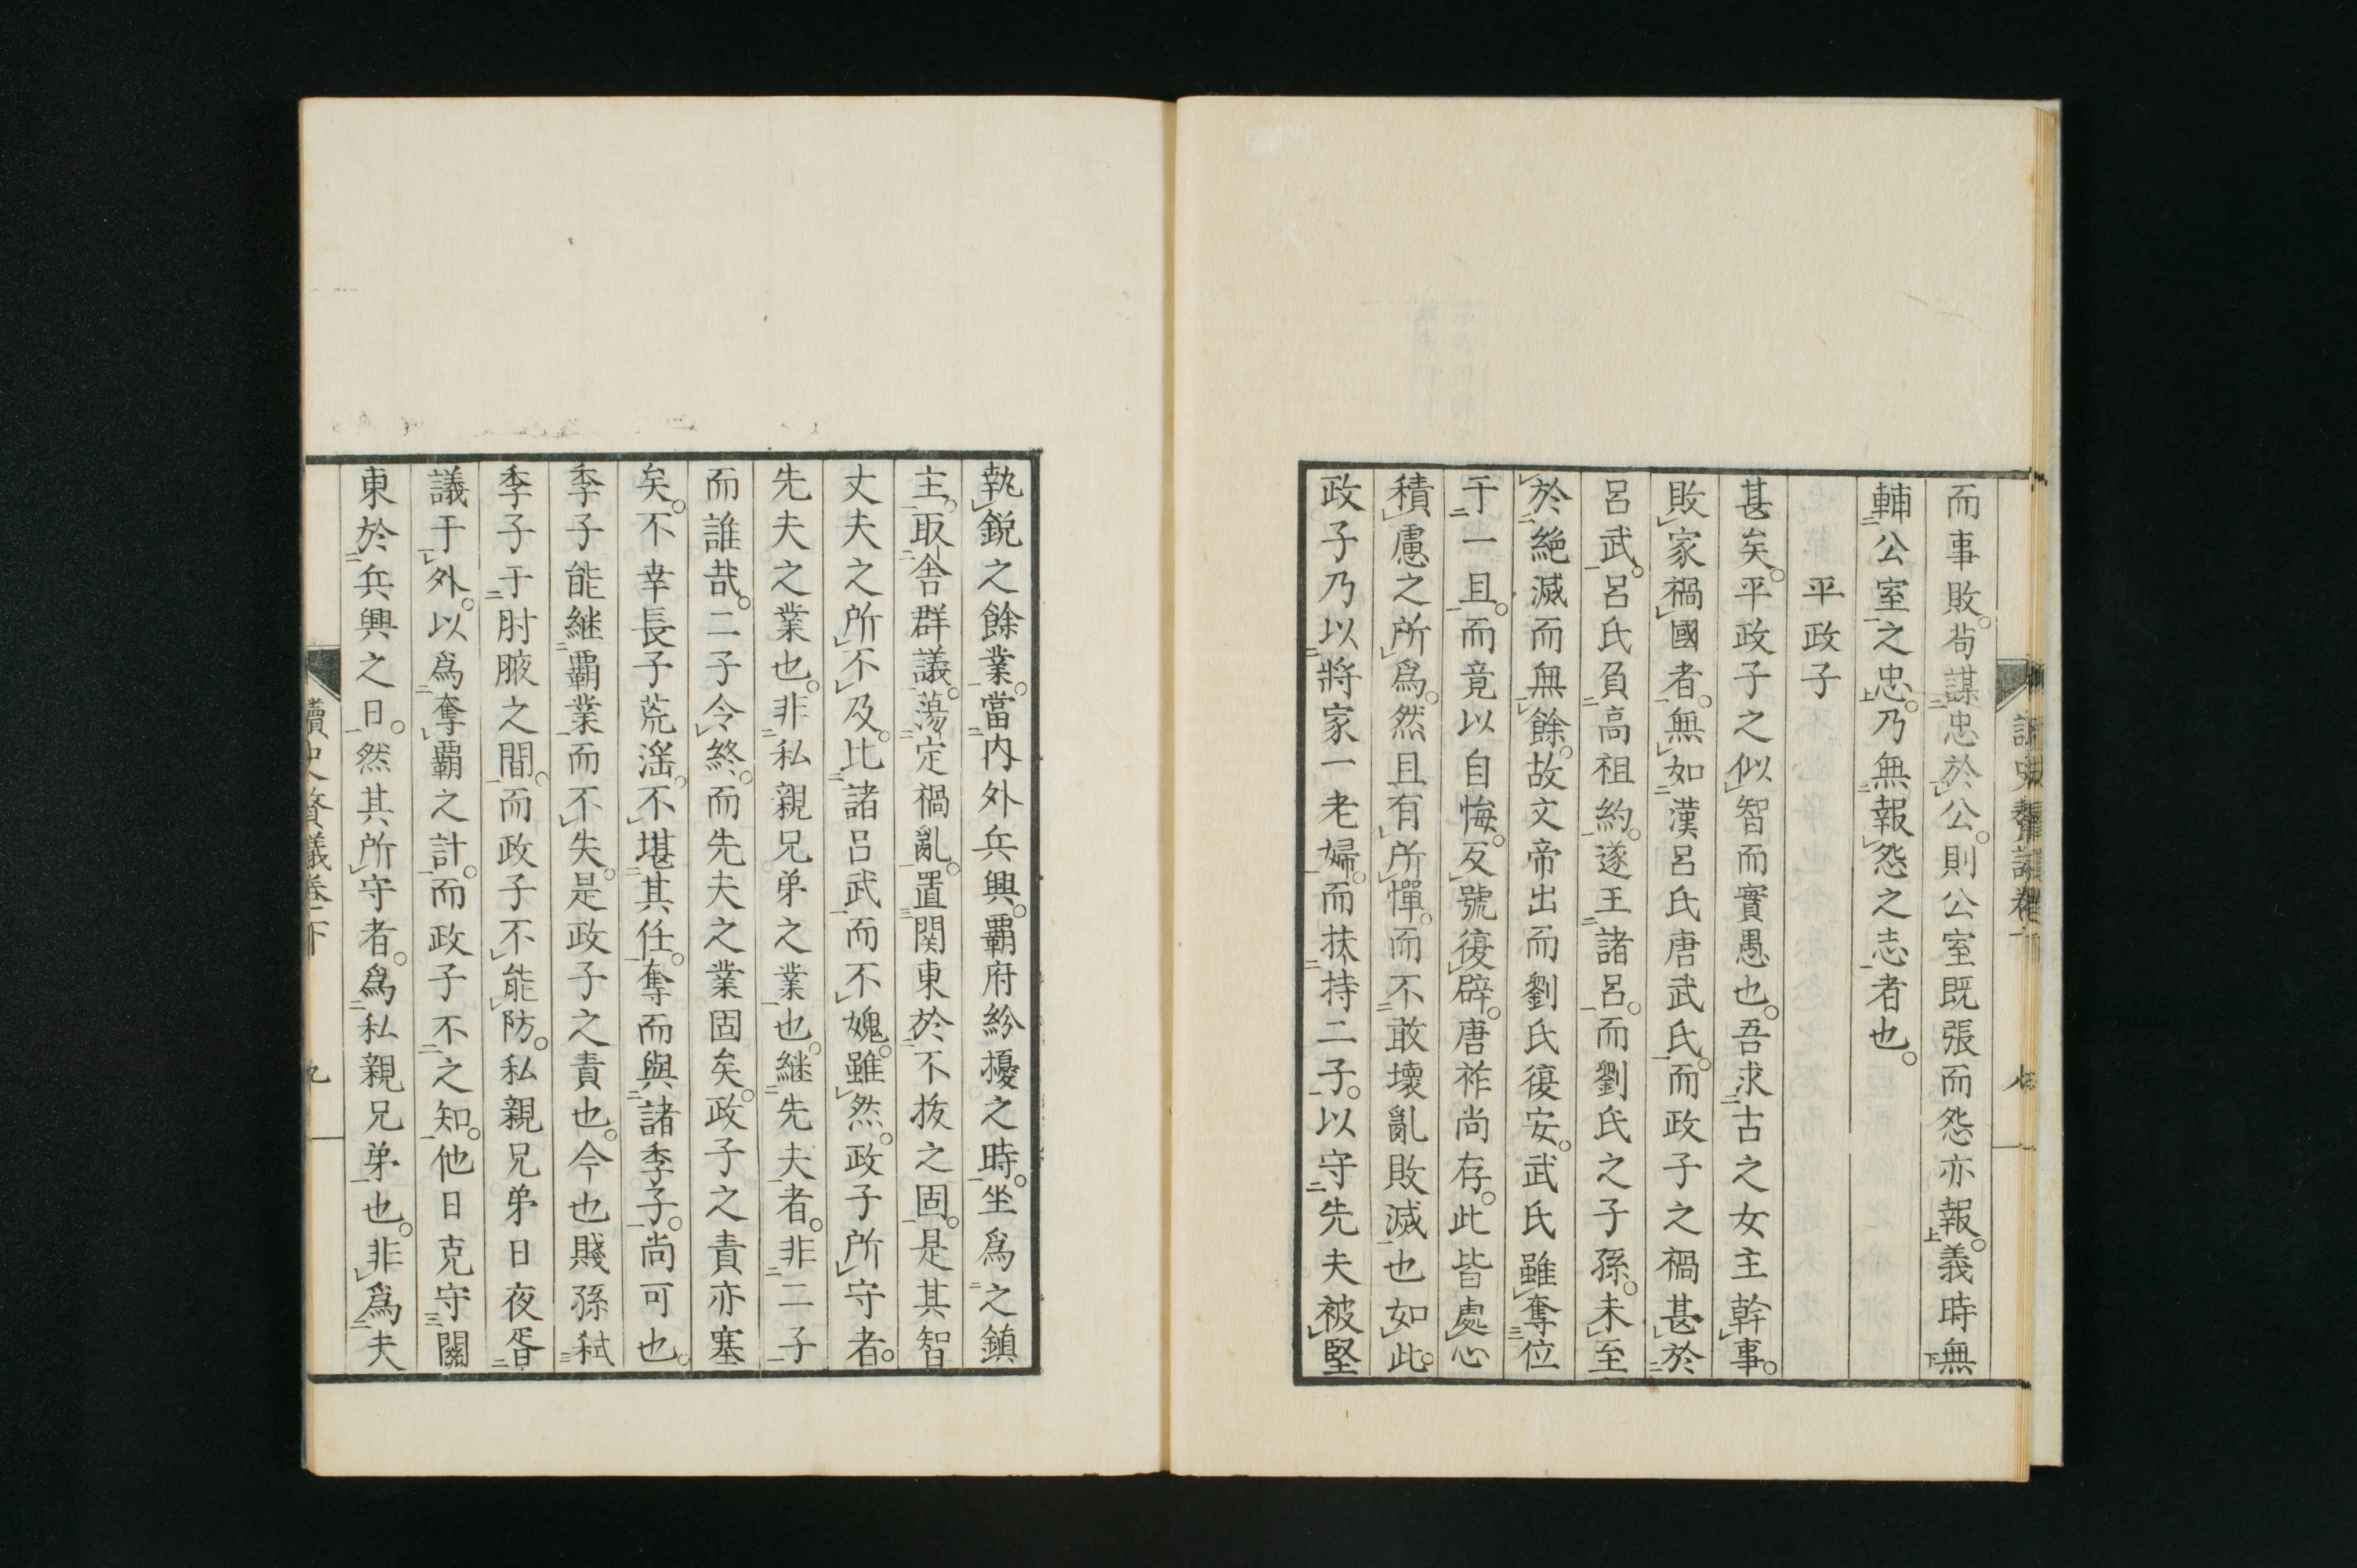 而事敗。苟謀忠於公。則公室既張而怨亦報。義時無
輔公室之忠。乃無報怨之志者也。
平政子
甚矣。平政子之似智而實愚也。吾求古之女主幹事。
敗家禍國者。無如漢呂氏唐武氏。而政子之禍甚於
呂武。呂氏負高祖約。遂王諸呂。而劉氏之子孫。未至
於絶滅而無餘。故文帝出而劉氏復安。武氏雖奪位
于一且。而竟以自悔。反號復辟。唐祚尚存。此皆處心
積慮之所爲。然且有所憚。而不敢壞亂敗滅也如此。
政子乃以將家一老婦。而扶持二子。以守先夫被堅
執鋭之餘業。當內外兵興。覇府紛擾之時。坐爲之鎮
主。取舎群議。蕩定禍亂。置関東於不抜之固。是其智
丈夫之所不及。比諸呂武而不媿。雖然。政子所守者。
先夫之業也。非私親兄弟之業也。継先夫者。非二子
而誰哉。二子令終。而先夫之業固矣。政子之責亦塞
矣。不幸長子荒滛。不堪其任。奪而與諸季子。尚可也。
季子能継覇業而不失。是政子之責也。今也賤孫弑
季子于肘腋之間。而政子不能防。私親兄弟日夜胥
議于外。以爲奪覇之計。而政子不之知。他日克守關
東於兵興之日。然其所守者。爲私親兄弟也。非爲夫
讀史贅議卷下
九